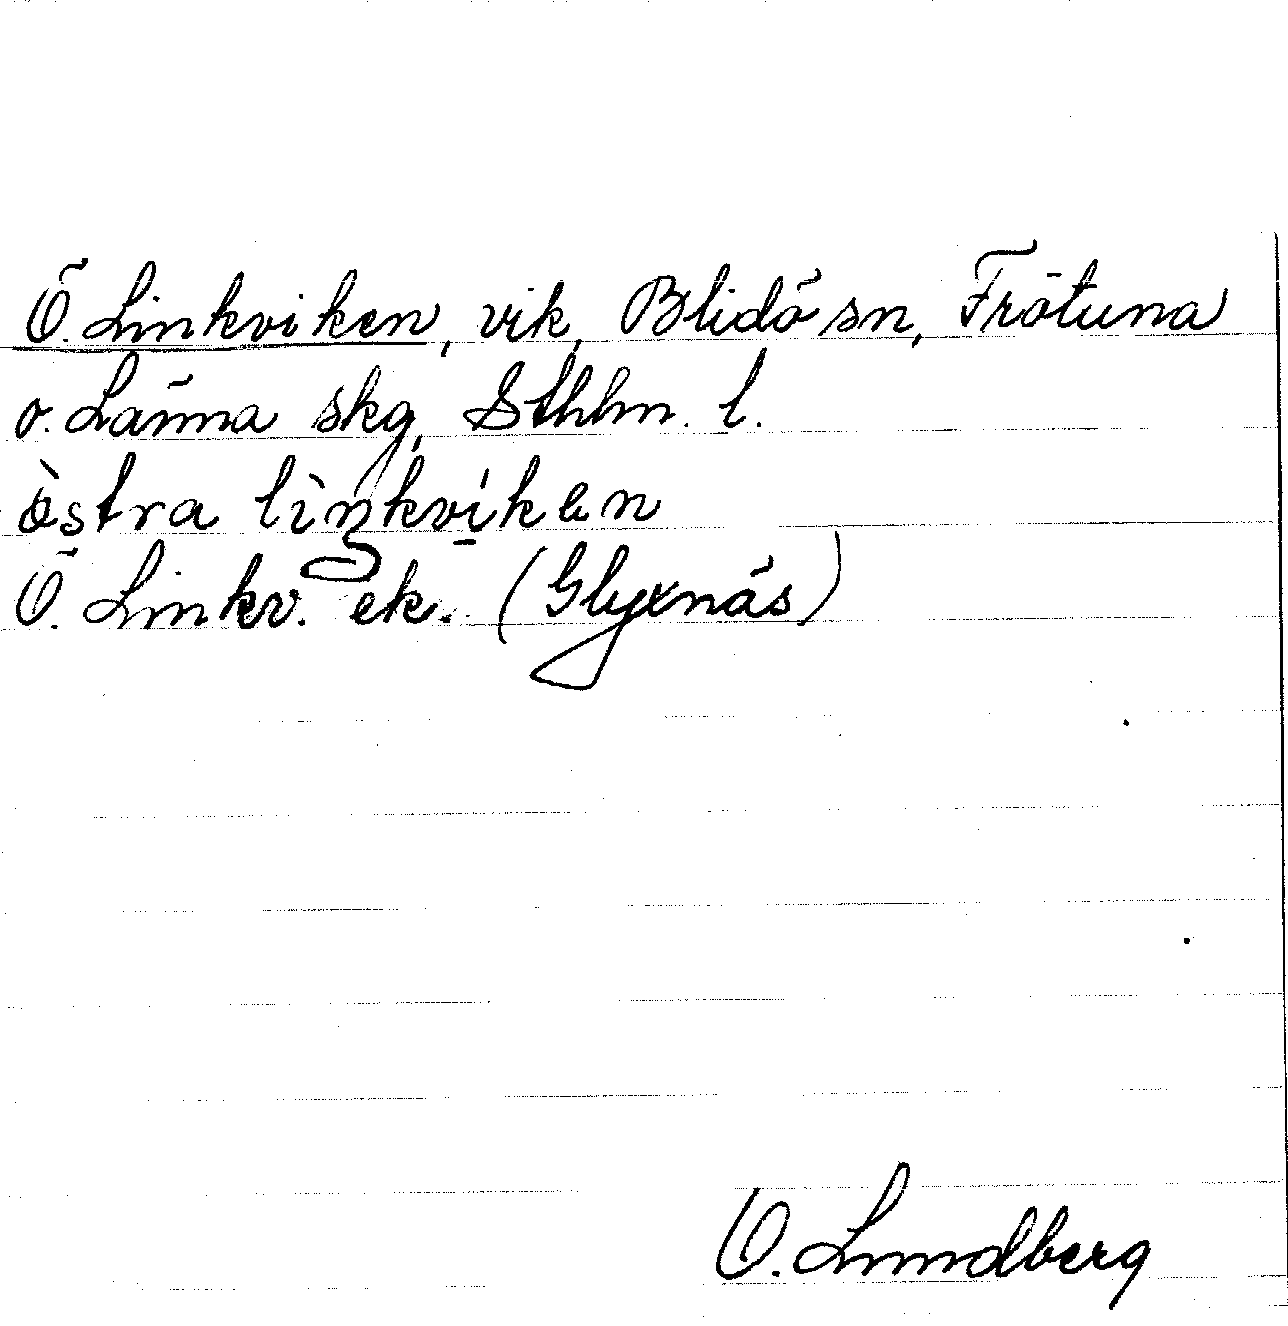 Ö. Linkviken, vik, Blidö sn, Frötuna
o. Länna skg, Sthlm. l.
òstra lìnkvíkan
Ö. Linkv. ek. (Glyxnäs)
O. Lundberg